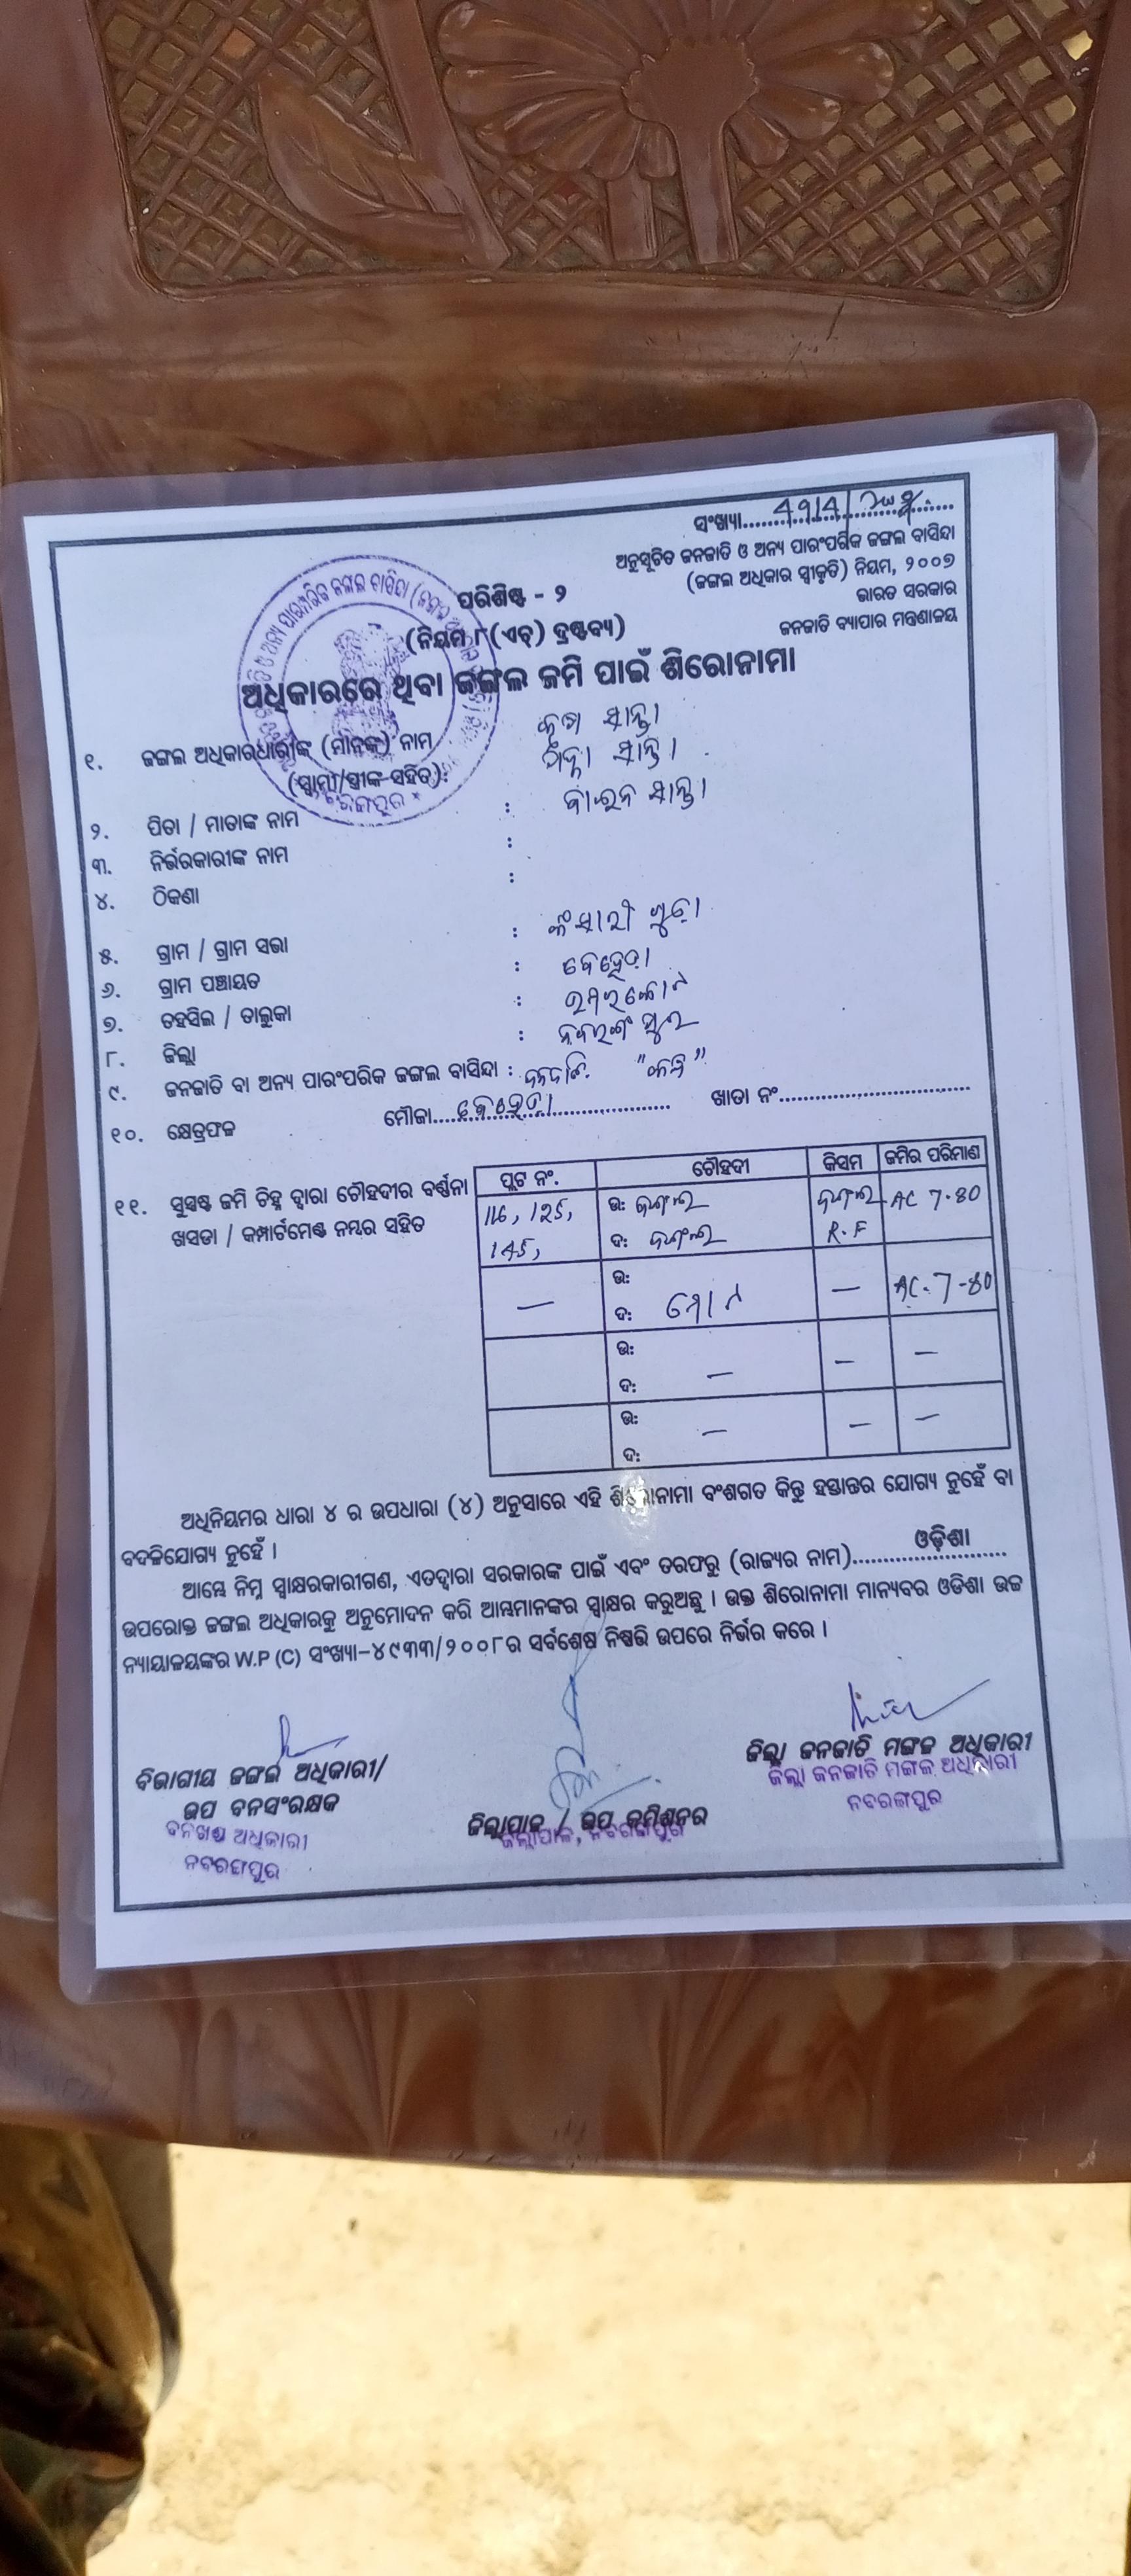 ସଂଖ୍ୟା
ଅନୁସୂଚିତ ଜନଜାତି ଓ ଅନ୍ୟ ପାରଂପରିକ ଜଙ୍ଗଲ ବାସିନ୍ଦା
(ଜଙ୍ଗଲ ଅଧିକାର ସ୍ୱୀକୃତି) ନିୟମ, ୨୦୦୭
ଭାରତ ସରକାର
ଜନଜାତି ବ୍ୟାପାର ମନ୍ତ୍ରଣାଳୟ
ପରିଶିଷ୍ଟ - ୨
(ନିୟମ ୮(ଏଚ୍) ଦ୍ରଷ୍ଟବ୍ୟ)
ଅଧିକାରରେ ଥିବା ଜଙ୍ଗଲ ଜମି ପାଇଁ ଶିରୋନାମା
୧. ଜଙ୍ଗଲ ଅଧିକାରଧାରୀଙ୍କ (ମାନଙ୍କ) ନାମ
(ସ୍ୱାମୀ/ସ୍ତ୍ରୀଙ୍କ ସହିତ):
୨. ପିତା / ମାତାଙ୍କ ନାମ :
୩. ନିର୍ଭରକାରୀଙ୍କ ନାମ :
୪. ଠିକଣା :
୫. ଗ୍ରାମ / ଗ୍ରାମ ସଭା :
୬. ଗ୍ରାମ ପଞ୍ଚାୟତ : ବେହେଡ଼ା
୭. ତହସିଲ / ତାଲୁକା :
୮. ଜିଲ୍ଲା : ନବରଙ୍ଗପୁର
୯. ଜନଜାତି ବା ଅନ୍ୟ ପାରଂପରିକ ଜଙ୍ଗଲ ବାସିନ୍ଦା : ଜନଜାତି
୧୦. କ୍ଷେତ୍ରଫଳ ମୌଜା ବେହେଡ଼ା ଖାତା ନଂ
୧୧. ସୁସ୍ପଷ୍ଟ ଜମି ଚିହ୍ନ ଦ୍ୱାରା ଚୌହଦୀର ବର୍ଣ୍ଣନା
ଖସଡା / କମ୍ପାର୍ଟମେଣ୍ଟ ନମ୍ବର ସହିତ
ପ୍ଲଟ ନଂ. ଚୌହଦୀ କିସମ ଜମିର ପରିମାଣ
116, 125, ଉ: ଜଙ୍ଗଲ ଜଙ୍ଗଲ AC 7.80
145, ଦ: ଜଙ୍ଗଲ R.F
— ଉ:
ଦ: ମୋଟ — AC. 7-80
ଉ:
ଦ: — — —
ଉ:
ଦ: — — —
ଅଧିନିୟମର ଧାରା ୪ ର ଉପଧାରା (୪) ଅନୁସାରେ ଏହି ଶିରୋନାମା ବଂଶଗତ କିନ୍ତୁ ହସ୍ତାନ୍ତର ଯୋଗ୍ୟ ନୁହେଁ ବା
ବଦଳିଯୋଗ୍ୟ ନୁହେଁ ।
ଆମ୍ଭେ ନିମ୍ନ ସ୍ୱାକ୍ଷରକାରୀଗଣ, ଏତଦ୍ୱାରା ସରକାରଙ୍କ ପାଇଁ ଏବଂ ତରଫରୁ (ରାଜ୍ୟର ନାମ) ଓଡ଼ିଶା
ଉପରୋକ୍ତ ଜଙ୍ଗଲ ଅଧିକାରକୁ ଅନୁମୋଦନ କରି ଆମ୍ଭମାନଙ୍କର ସ୍ୱାକ୍ଷର କରୁଅଛୁ । ଉକ୍ତ ଶିରୋନାମା ମାନ୍ୟବର ଓଡିଶା ଉଚ୍ଚ
ନ୍ୟାୟାଳୟଙ୍କର W.P (C) ସଂଖ୍ୟା-୪୯୩୩/୨୦୦୮ର ସର୍ବଶେଷ ନିଷ୍ପତ୍ତି ଉପରେ ନିର୍ଭର କରେ ।
ବିଭାଗୀୟ ଜଙ୍ଗଲ ଅଧିକାରୀ/
ଉପ ବନସଂରକ୍ଷକ
ବନଖଣ୍ଡ ଅଧିକାରୀ
ନବରଙ୍ଗପୁର
ଜିଲ୍ଲାପାଳ / ଉପ କମିଶନର
ଜିଲ୍ଲାପାଳ, ନବରଙ୍ଗପୁର
ଜିଲ୍ଲା ଜନଜାତି ମଙ୍ଗଳ ଅଧିକାରୀ
ଜିଲ୍ଲା ଜନଜାତି ମଙ୍ଗଳ ଅଧିକାରୀ
ନବରଙ୍ଗପୁର